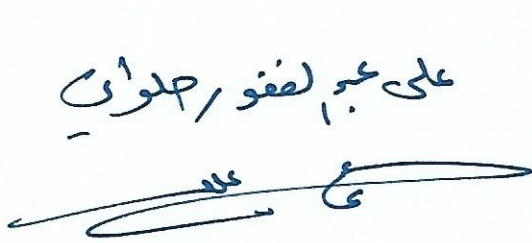 على عبدالغفور حلواني
على